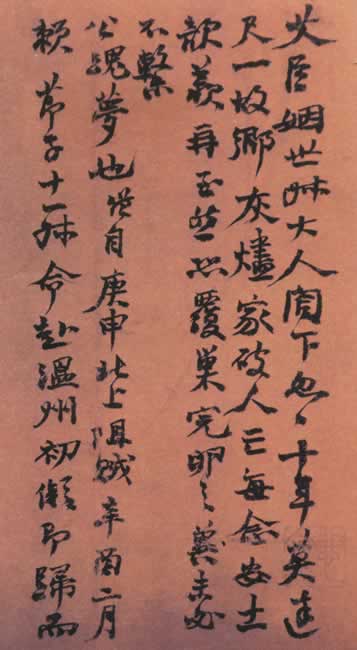 艾臣姻世叔大人閣下匆匆十年莫達
尺一故鄉灰燼家破人亡每念安土
再至覆巢完卵之冀未必
不繫
公魂夢也自庚申北上阻賊辛酉二月
賴節子十一叔命赴溫州初擬即歸而